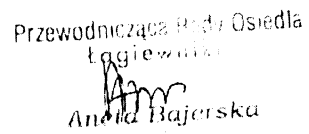 Przewodnicząca Rady Osiedla
Łagiewniki
Aneta Bajerska